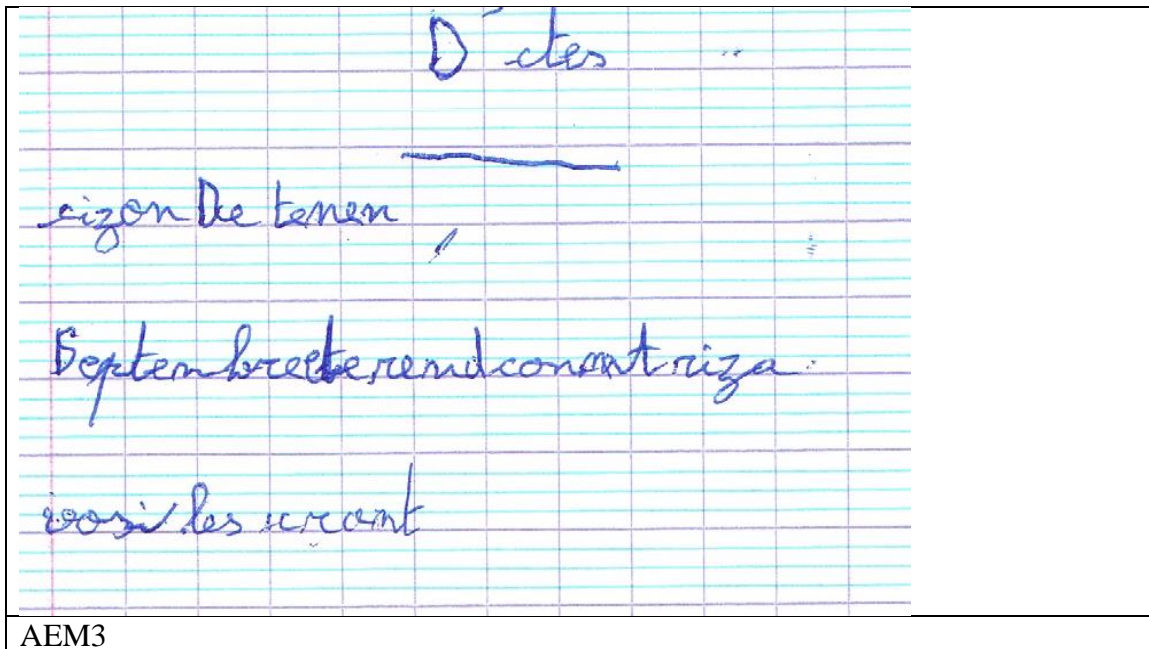 D ctes
sizon De tenen
Septenbreeterendconantriza
vosi les urant
AEM3